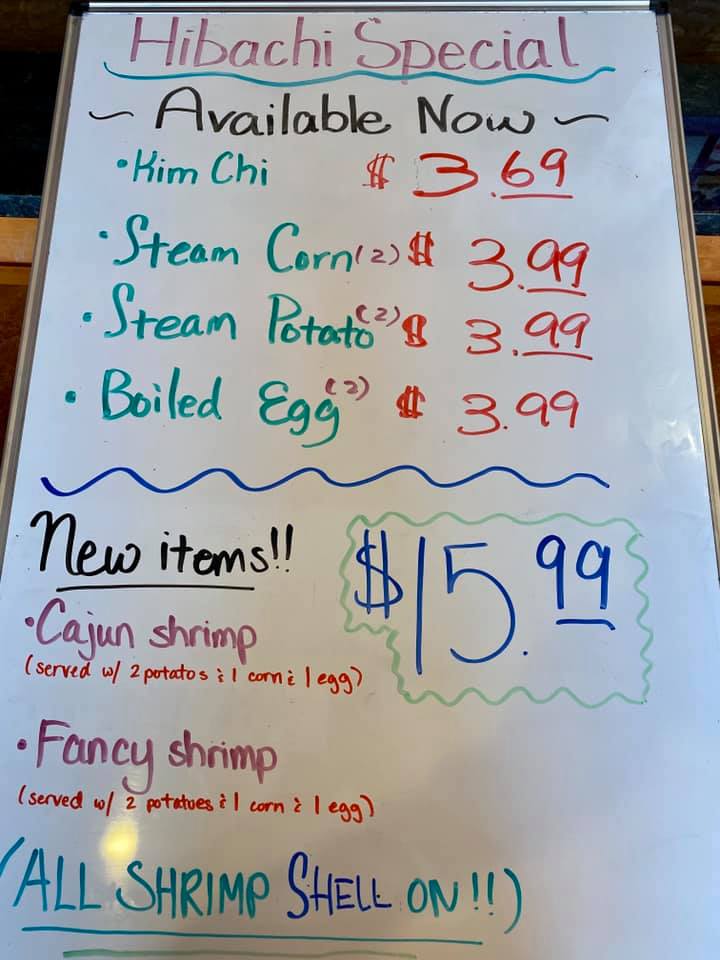 Hibachi Special
~ Available Now ~
• Kim Chi $ 3.69
• Steam Corn (2) $ 3.99
• Steam Potato (2) $ 3.99
• Boiled Egg (2) $ 3.99
New items!! $15.99
• Cajun shrimp
(served w/ 2 potatos & 1 corn & 1 egg)
• Fancy shrimp
(served w/ 2 potatoes & 1 corn & 1 egg)
(ALL SHRIMP SHELL ON!!)